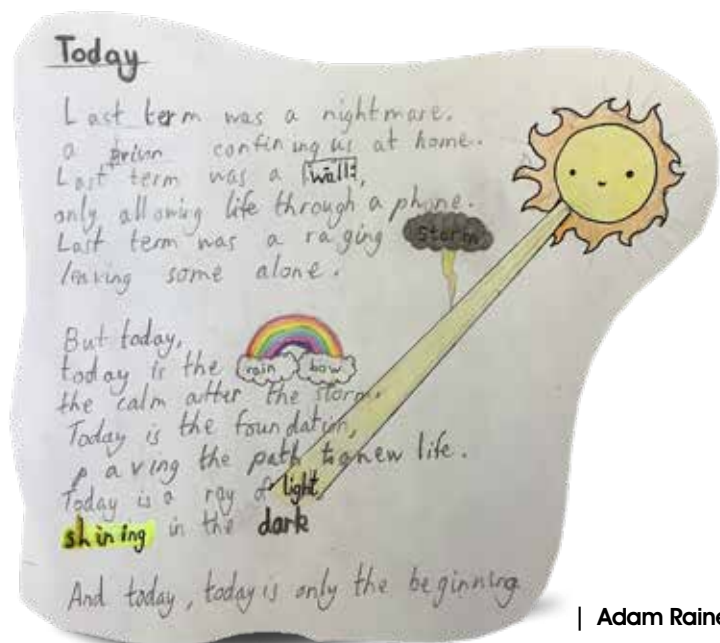 Today
Last term was a nightmare.
a prison confining us at home.
Last term was a wall,
only allowing life through a phone.
Last term was a raging storm
leaving some alone.
But today,
today is the rain bow
the calm after the storm.
Today is the foundation,
paving the path to new life.
Today is a ray of light
shining in the dark
And today, today is only the beginning
| Adam Raine